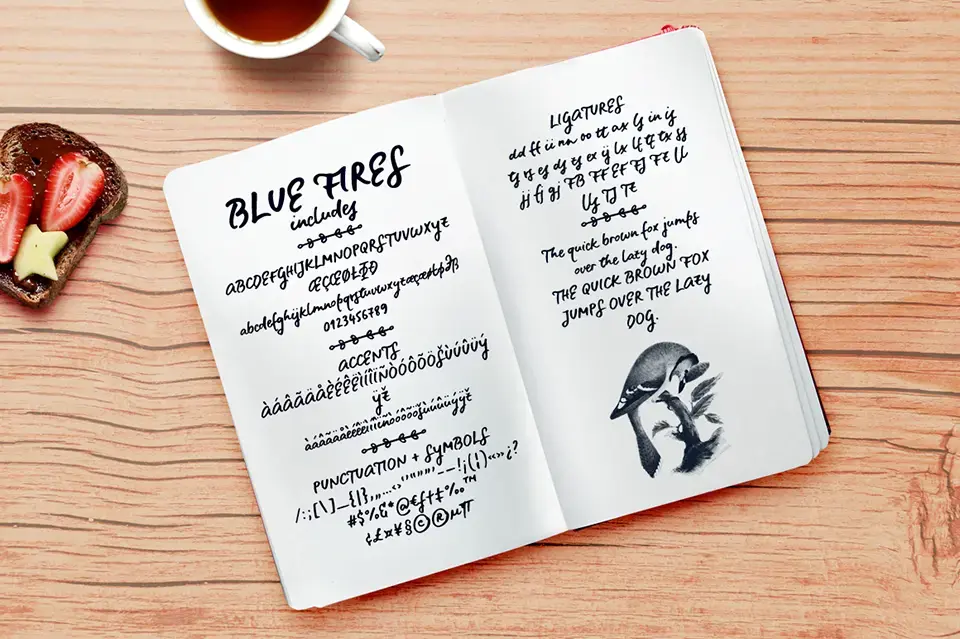 BLUE FIRES
includes
ABCDEFGHIJKLMNOPQRSTUVWXYZ
ÆÇŒØŁÍÐ
abcdefghijklmnopqrstuvwxyzæçœøłþðß
0123456789
ACCENTS
ÀÁÂÃÄÅÈÉÊËÌÍÎÏÑÒÓÔÕÖŠÙÚÛÜÝ
ŸŽ
àáâãäåèéêëìíîïñòóôõöšùúûüýÿž
PUNCTUATION + SYMBOLS
/:;[\]_{|},„…‹›‘’“”"'–—-!¡(¦)«»¿?
#$%&*@€ƒ†‡°‰™
¢£¤¥§©®µ¶
LIGATURES
dd ff ii nn oo tt ax
The quick brown fox jumps
over the lazy dog.
THE QUICK BROWN FOX
JUMPS OVER THE LAZY
DOG.